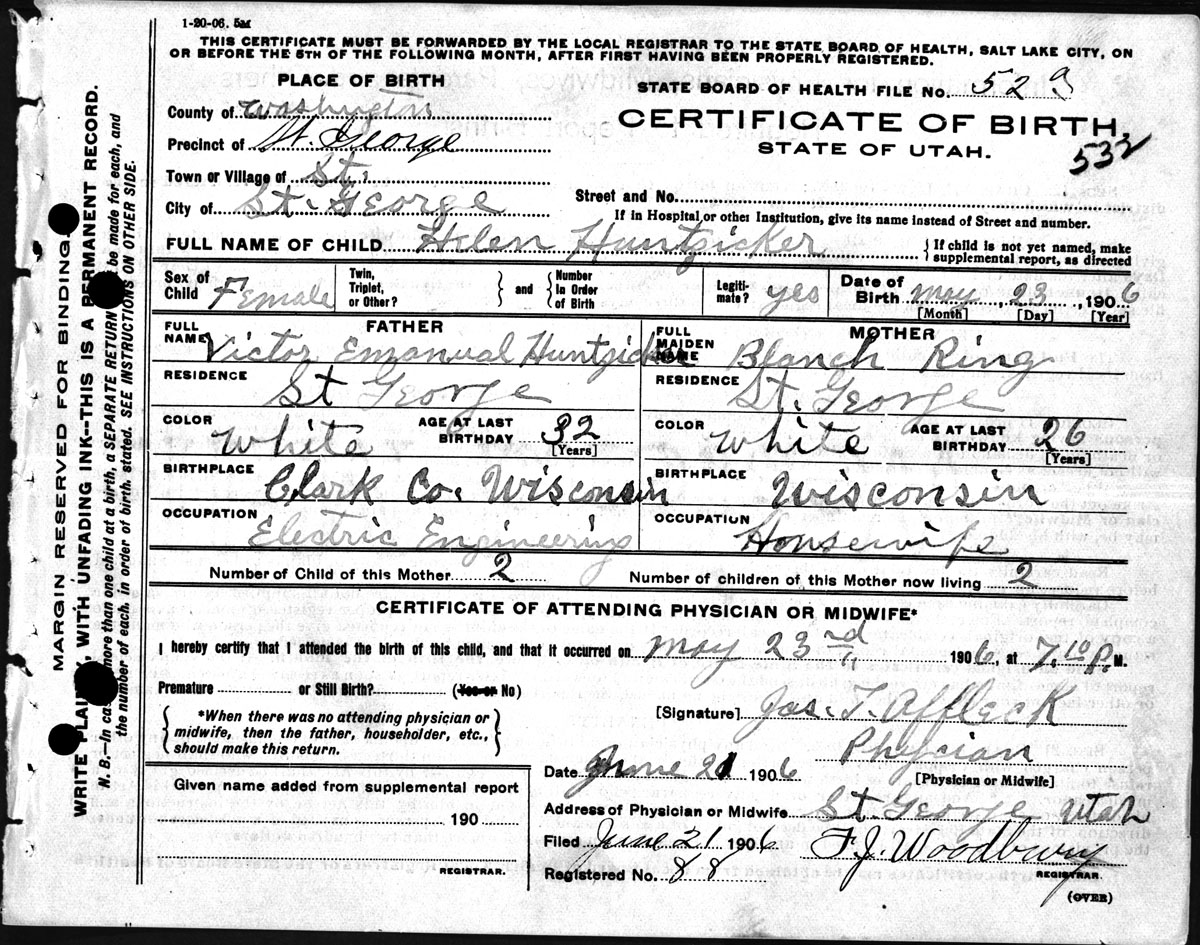 1-20-06. 5M
THIS CERTIFICATE MUST BE FORWARDED BY THE LOCAL REGISTRAR TO THE STATE BOARD OF HEALTH, SALT LAKE CITY, ON
OR BEFORE THE 5TH OF THE FOLLOWING MONTH, AFTER FIRST HAVING BEEN PROPERLY REGISTERED.
PLACE OF BIRTH
STATE BOARD OF HEALTH FILE No. 529
County of Washington
CERTIFICATE OF BIRTH,
Precinct of St. George
STATE OF UTAH.
532
Town or Village of St.
Street and No.
City of St. George
If in Hospital or other Institution, give its name instead of Street and number.
FULL NAME OF CHILD Helen Huntzicker
{If child is not yet named, make
supplemental report, as directed
Sex of Child Female
Twin, Triplet, or Other? } and { Number In Order of Birth
Legiti-mate? yes
Date of Birth May, 23, 1906
[Month] [Day] [Year]
FATHER
MOTHER
FULL NAME Victor Emanual Huntzicker
FULL MAIDEN NAME Blanch Ring
RESIDENCE St George
RESIDENCE St. George
COLOR White AGE AT LAST BIRTHDAY 32 [Years]
COLOR White AGE AT LAST BIRTHDAY 26 [Years]
BIRTHPLACE Clark Co. Wisconsin
BIRTHPLACE Wisconsin
OCCUPATION Electric Engineering
OCCUPATION Housewife
Number of Child of this Mother 2
Number of children of this Mother now living 2
CERTIFICATE OF ATTENDING PHYSICIAN OR MIDWIFE*
I hereby certify that I attended the birth of this child, and that it occurred on May 23rd " 1906, at 7.10 P. M.
Premature or Still Birth? (Yes or No)
[Signature] Jas. T. Affleck
{*When there was no attending physician or
midwife, then the father, householder, etc.,
should make this return.}
Phycian
[Physician or Midwife]
Date June 21 1906
Given name added from supplemental report
190
REGISTRAR.
Address of Physician or Midwife St. George Utah
Filed June 21 1906 F. J. Woodbury
REGISTRAR.
Registered No. 88
(OVER)
MARGIN RESERVED FOR BINDING.
WRITE PLAINLY, WITH UNFADING INK--THIS IS A PERMANENT RECORD.
N. B.—In case more than one child at a birth, a SEPARATE RETURN be made for each, and
the number of each, in order of birth, stated. SEE INSTRUCTIONS ON OTHER SIDE.